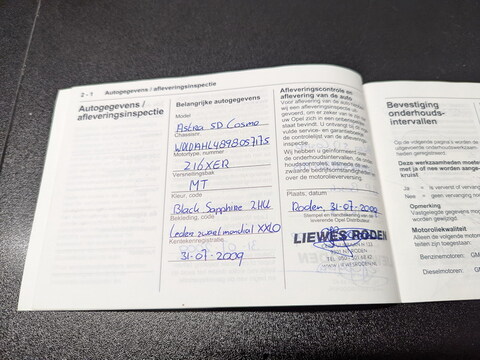 2 - 1 Autogegevens / afleveringsinspectie
Autogegevens /
afleveringsinspectie
Belangrijke autogegevens
Model
Astra 5D Cosmo
Chassisnr.
Motortype, nummer
Z16XER
Versnellingsbak
MT
Kleur, code
Black Sapphire 2HU
Bekleding, code
Leder zwart mondial XXLO
Kentekenregistratie
31-07-2009
Afleveringscontrole en
aflevering van de auto
Voor aflevering van de auto
wij een afleveringsinspectie
gevoerd, om er zeker van te
uw Opel zich in een onberispelijke
staat bevindt. U ontvangt bij dit
vulde service- en garantie
de controlelijst van de afleverings
inspectie.
Wij hebben u geïnformeerd over
de onderhoudsintervallen, de
houdscontroles, alsmede de
zwaarde bedrijfsomstandigheden
over de motorolieverversing.
Plaats, datum
Roden, 31-07-2009
Stempel en handtekening van de
leverende Opel Distributeur
LIEWES RODEN
WWW.LIEWESRODEN.NL
Bevestiging
onderhouds-
intervallen
Op de volgende pagina's worden de
uitgevoerde onderhoudswerkzaam
heden gespecificeerd.
Deze werkzaamheden moeten
met ja of nee worden aange-
kruist.
Ja = is ververst of vervangen
Nee = geen vervanging nodig
Opmerking
Vastgelegde gegevens moeten
worden gewijzigd.
Motoroliekwaliteit
Alleen de volgende motorolie
teiten zijn toegestaan:
Benzinemotoren: GM
Dieselmotoren: GM